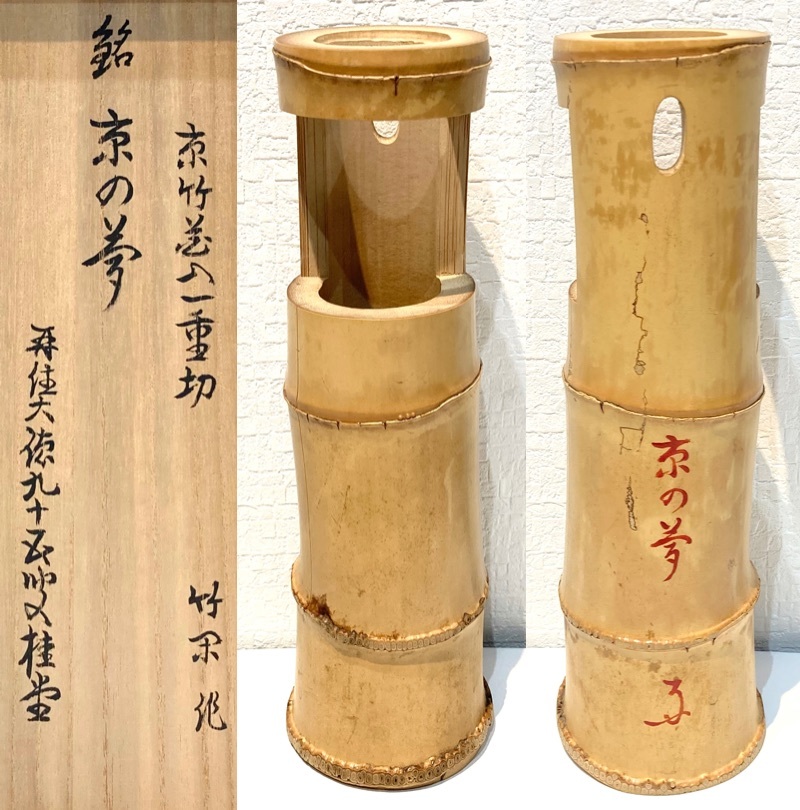 京竹花入一重切
竹 作
銘 京の夢
再住大徳九十五叟桂堂
京の夢